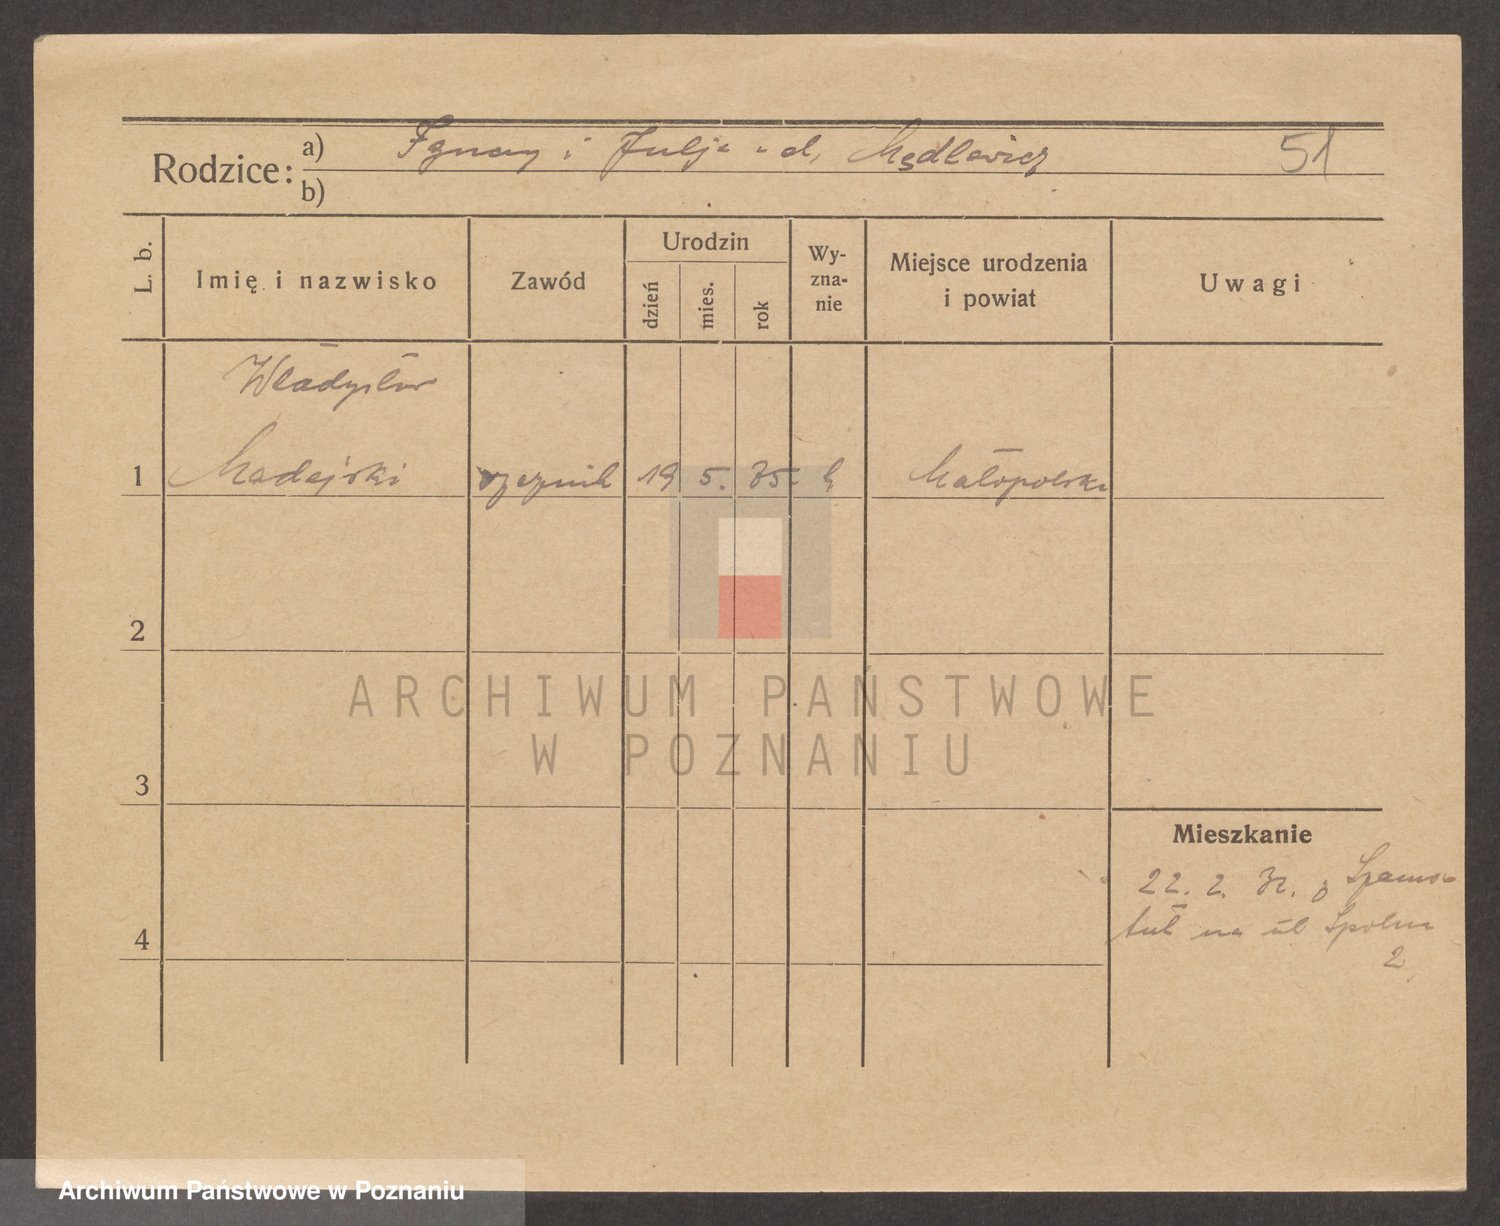 Rodzice: a) Ignacy i Julja z d. Mędlewicz 51
b)
L. b. Imię i nazwisko Zawód Urodzin dzień mies. rok Wy-zna-nie Miejsce urodzenia i powiat Uwagi
Władysław
1 Madejski 19 5. Małopolska
2
3
Mieszkanie
22. 2. 32. z Szamo-
4
tuł na ul Spólna
2
ARCHIWUM PAŃSTWOWE
W POZNANIU
Archiwum Państwowe w Poznaniu